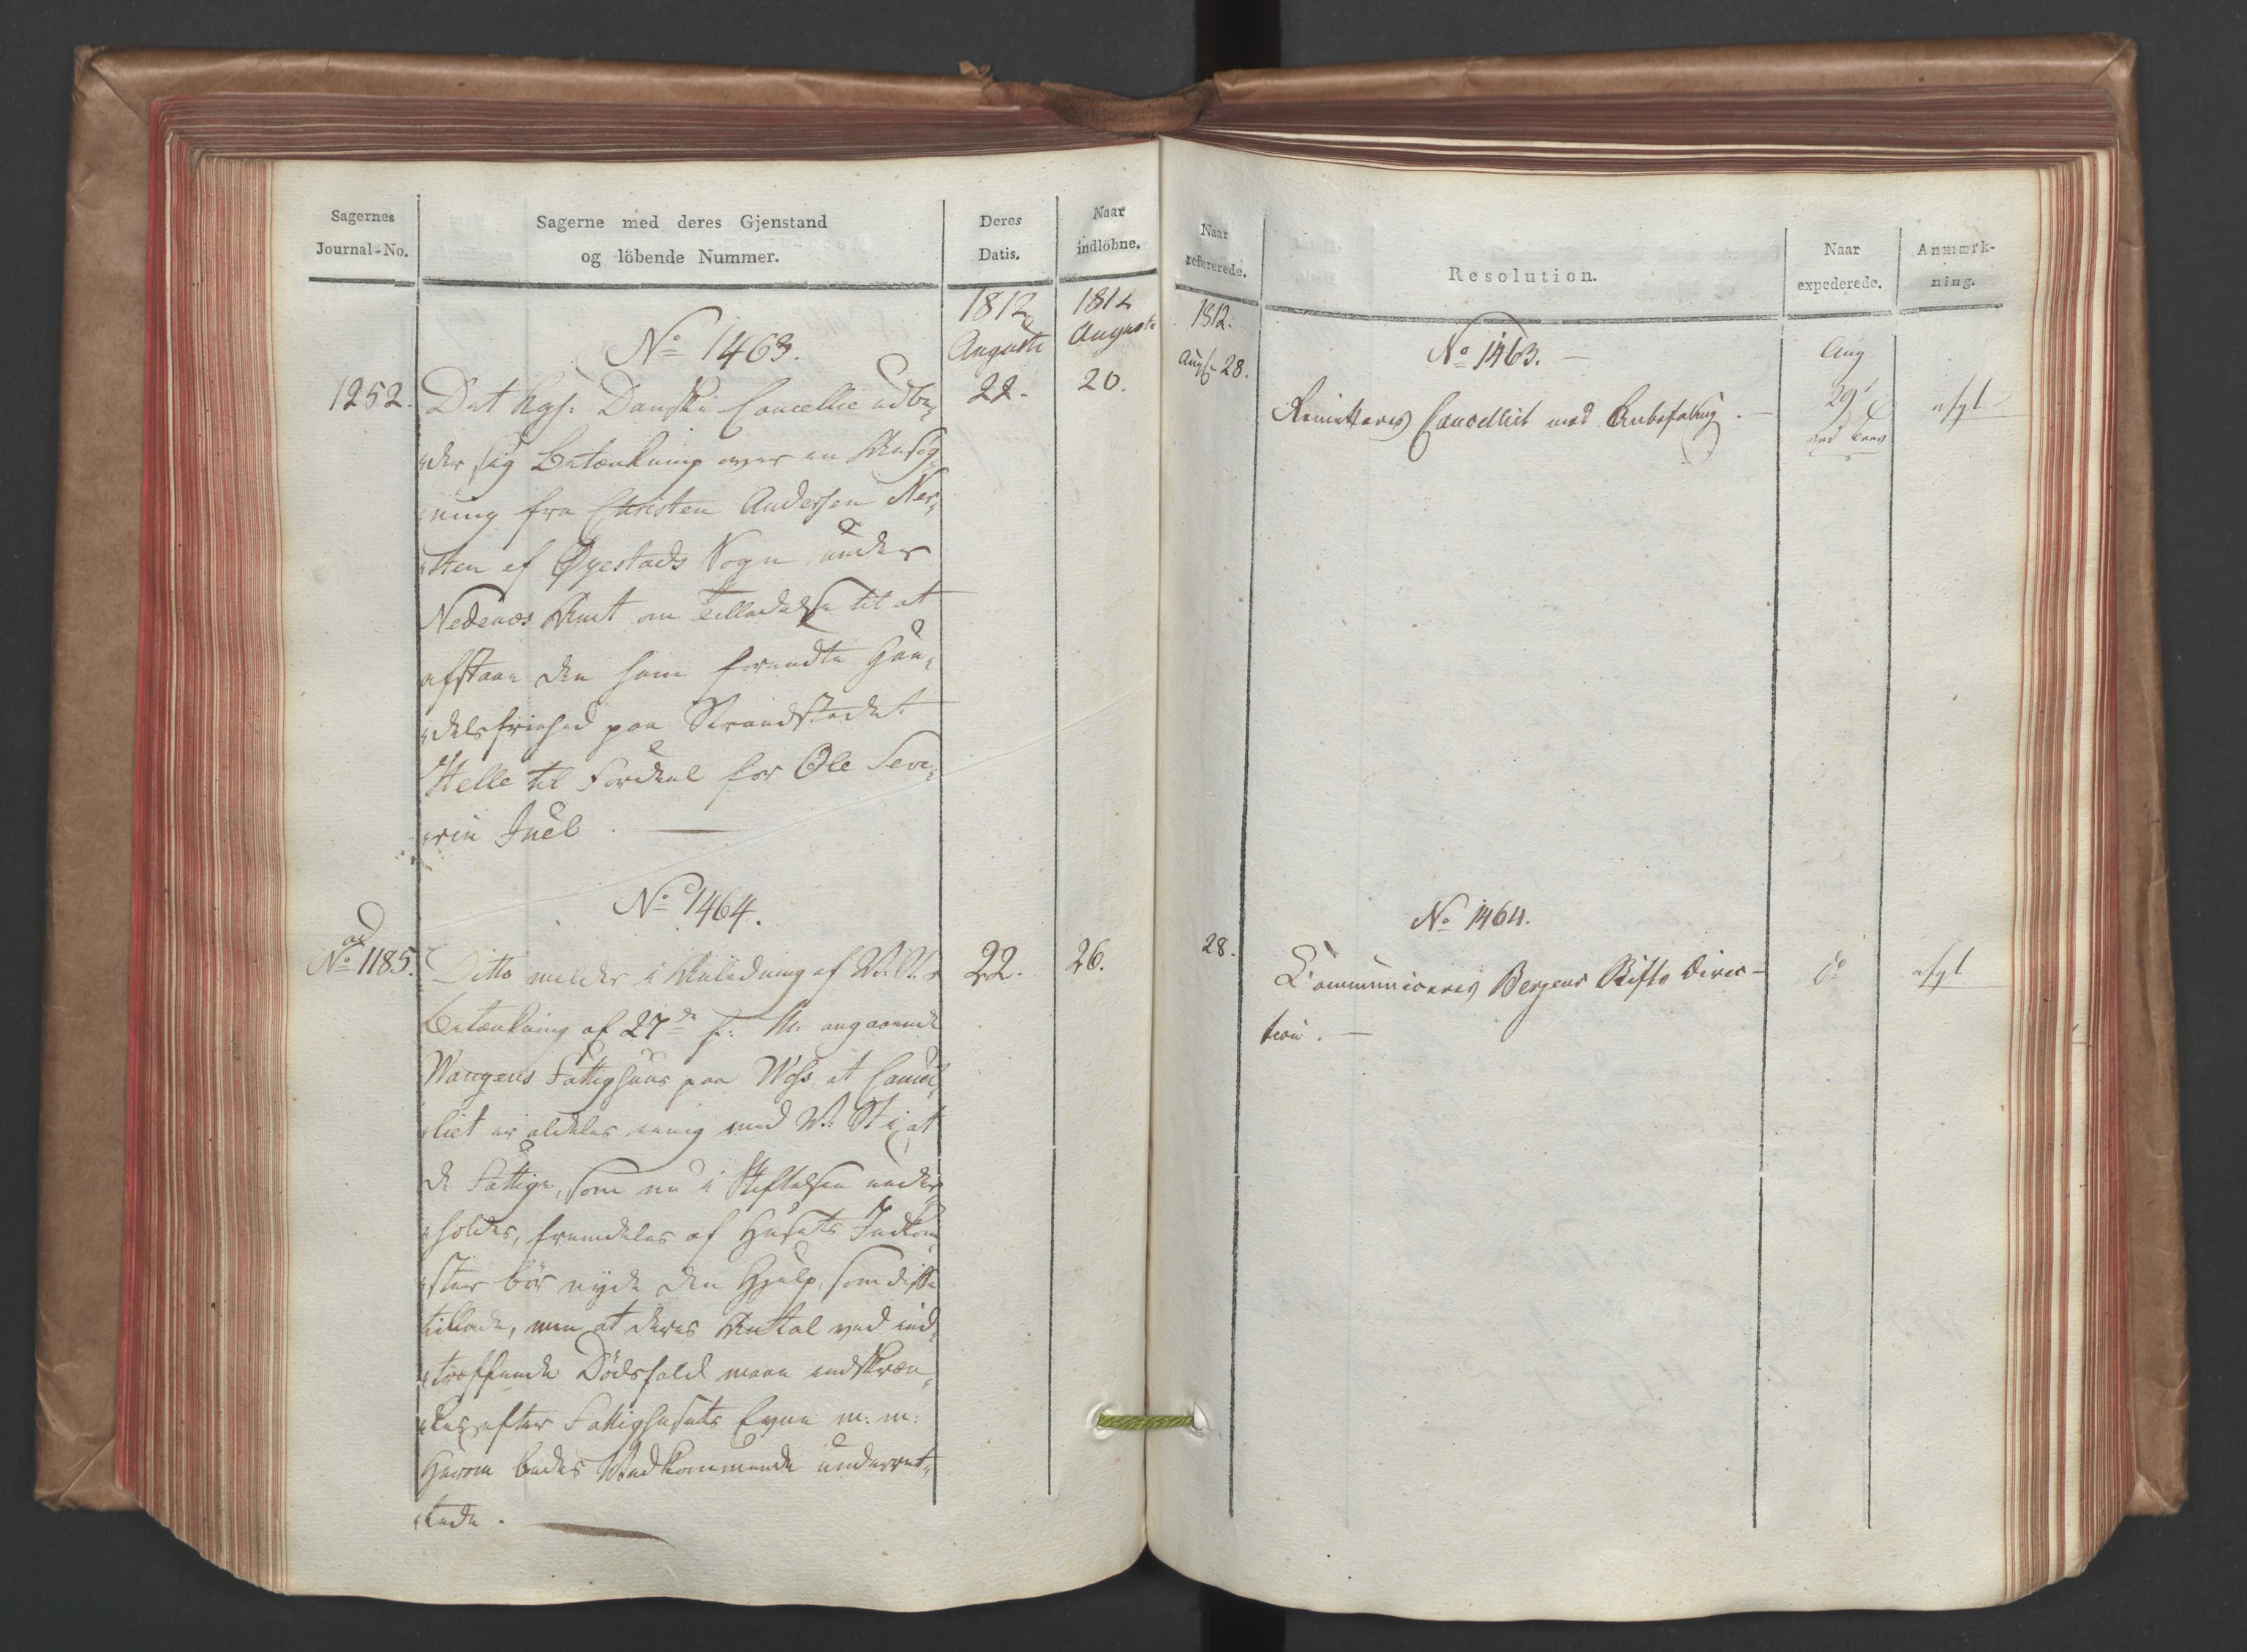 Sagernes
Journal-No.
Sagerne med deres Gjenstand
og löbende Nummer.
Deres
Datis.
Naar
indlöbne.
1812
Auguste
1812
Auguste
No 1463.
1252. Det kgs: Danske Cancellie udbe„
22. 20.
„der sig Betænkning over en Ansög„
„ning fra Christen Andersen Ner„
„sten af Öyestads Sogn under
Nedenæs Amt om Tilladelse til at
afstaae den ham forundte Han„
„delsfrihed paa Strandstedet
Helle til Fordeel for Ole Seve„
„rin Juel.
No 1464.
ad
No 1185. Ditto melder i Anledning af V. St.s
22. 26.
Betænkning af 27de f: M. angaaende
Wangens Fattighuus paa Woss, at Cancel„
„liet er aldeles eenig med V: St i, at
de Fattige, som nu i Stiftelsen under„
„holdes, fremdeles af Husets Indkom„
„ster bör nyde den Hjelp, som disse
tillade, men at deres Antal ved ind„
„træffende Dödsfald maae indskræn„
„kes efter Fattighusets Evne m: m:
Herom bedes Vedkommende underret„
„tede.
Naar
refererede.
Resolution.
Naar
expederede.
Anmærk-
ning.
1812.
Augs. 28.
No 1463.
Aug
29
Remitteres Cancelliet med Anbefaling.
ved
afgl
No 1464.
28.
Communiceres Bergens Stifts Direc-
do
afgl
tion.